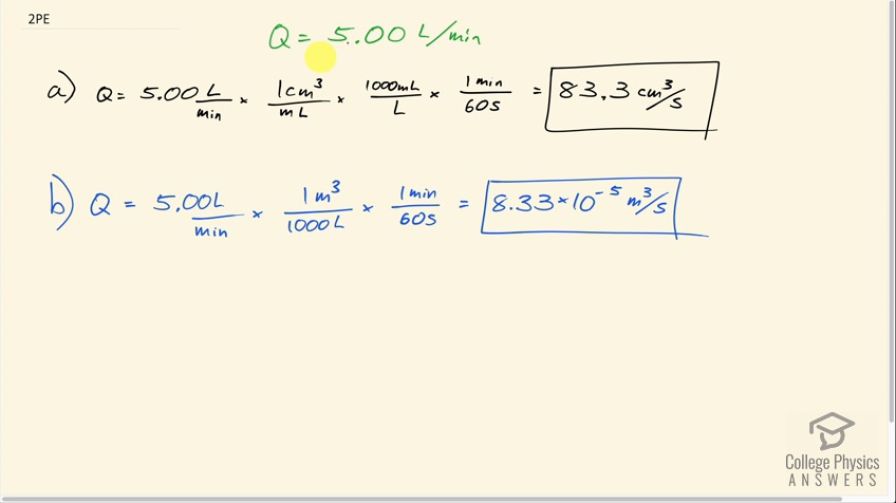 2PE
Q = 5.00 L/min
a) Q = 5.00 L/min × 1cm³/mL × 1000mL/L × 1min/60s = 83.3 cm³/s
b) Q = 5.00L/min × 1m³/1000L × 1min/60s = 8.33×10⁻⁵ m³/s
College Physics
ANSWERS